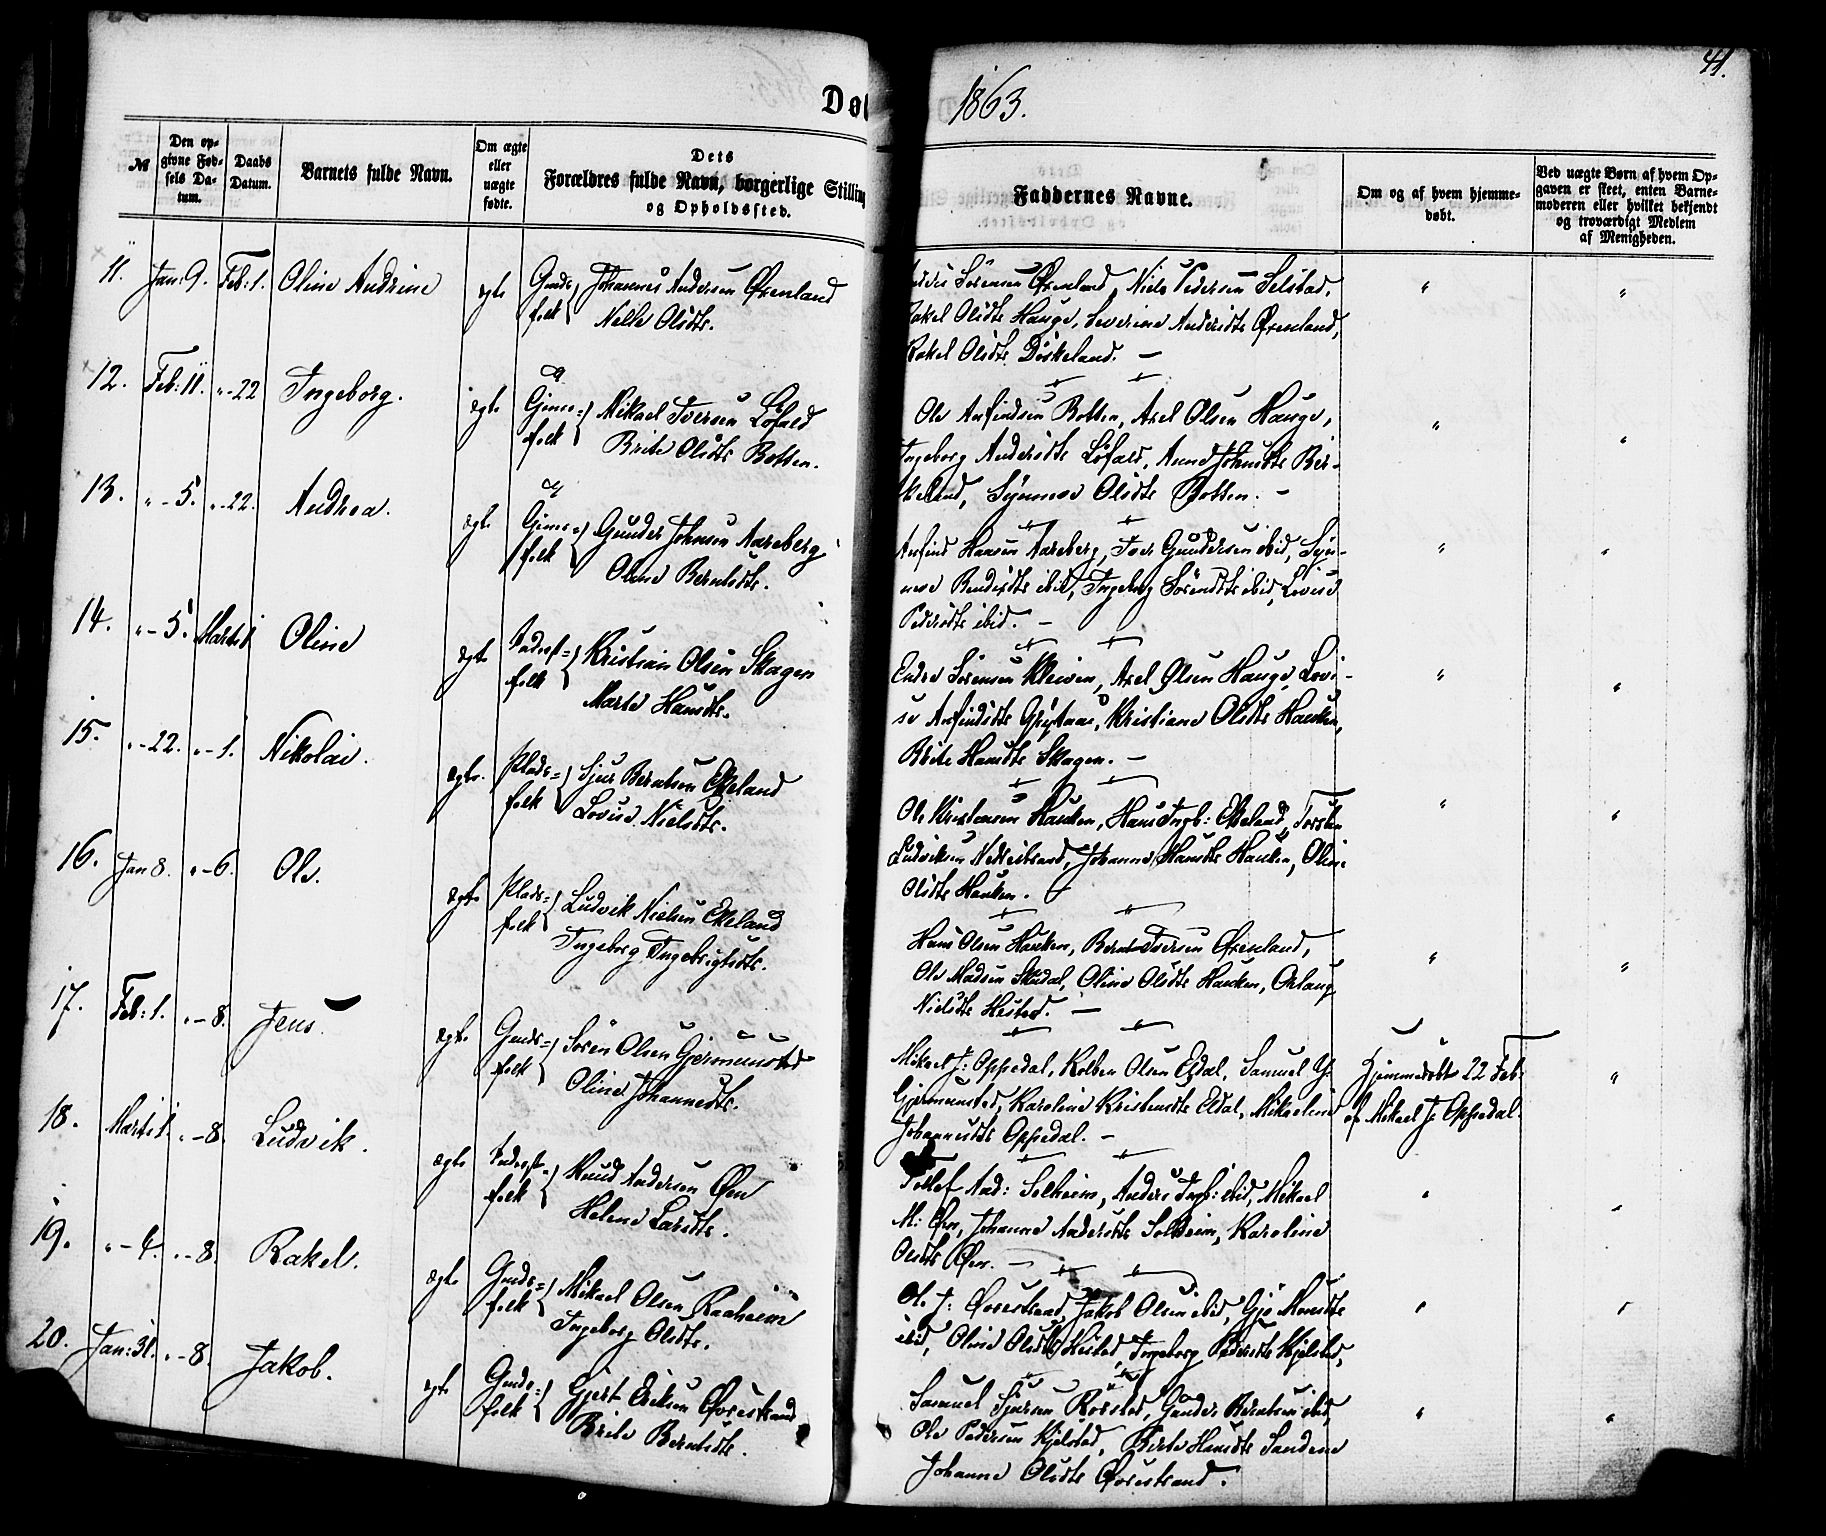 Dø
1863.
41.
№
Den op-
givne Fød-
sels Da-
tum.
Daabs
Datum.
Barnets fulde Navn.
Om ægte
eller
uægte
fødte.
Dets
Forældres fulde Navn, borgerlige Stilling
og Opholdssted.
Faddernes Navne.
Om og af hvem hjemme-
døbt.
Ved uægte Børn af hvem Op-
gaven er skeet, enten Barne-
moderen eller hvilket bekjendt
og troværdigt Medlem
af Menigheden.
11. Jan: 9. Feb: 1. Oline Andrine ægte Gmds= folk Johannes Andersen Øxenland
Nelle Olsdtr.
Sørensen Øxenland, Niels Pedersen Selstad,
Rakel Olsdtr Hauge, Severine Andersdtr Øxenland,
Rakel Olsdtr Døskeland. —
12. Feb: 11. " - 22 Ingeborg. ægte folk Mikael Iversen Løfald
Brite Olsdtr Botten.
Ole Anfindsen Botten, Axel Olsen Hauge,
Ingeborg Andersdtr Løfald, Anne Johnsdtr Bir-
keland, Synneve Olsdtr Botten. —
13. " - 5. " - 22. Andrea. ægte folk Gunder Johnsen Aareberg
Oline Berntsdtr.
Anfind Hansen Aareberg, Iver Gundersen ibid, Syn-
neve ibid, Ingeborg Sørensdtr ibid, Lovise
Pedersdtr ibid. —
14. " - 5. Marts 1 Oline ægte Inderst= folk Kristian Olsen Skagen
Marte Hansdtr.
Endre Sørensen Kleiven, Axel Olsen Hauge, Lovi-
se Anfindsdtr Kristiane Olsdtr Hauken,
Brite Hansdtr Skagen. —
15. " - 22. " - 1. Nikolai. ægte. Plads= folk Sjur Berntsen Ekeland
Lovise Nielsdtr.
Ole Kristensen Hauken, Hans Ingb: Ekeland, Torsten
Ludviksen Nedrestrand, Johanne Hansdtr Hauken, Oline
Olsdtr Hauken.
16. Jan 8. " - 6. Ole. ægte Plads= folk Ludvik Nielsen Ekeland
Ingeborg Ingebrigtsdtr.
Hans Olsen Hauken, Bernt Iversen Øxenland,
Ole Madsen Skadal, Oline Olsdtr Hauken,
Nielsdtr Hestad. —
17. Feb: 1. " - 8. Jens. ægte Gmds= folk Søren Olsen Gjermunstad
Oline Johannesdtr.
Mikael J: Oppedal, Kolben Olsen Eldal, Samuel
Gjermunstad, Karoline Kristensdtr Eldal, Mikaeline
Johannesdtr Oppedal. —
Hjemmedøbt 22 Feb:
af Mikael J: Oppedal.
18. Marts 1 " - 8. Ludvik. ægte Inderst= folk Knud Andersen Øen
Helene Larsdtr.
Tollef And: Solheim, Anders Ingb: ibid, Mikael
M: Øen, Johanne Andersdtr Solheim, Karoline
Olsdtr Øen. —
19. " - 4. " - 8. Rakel. ægte Gmds= folk Mikael Olsen Raaheim
Ingeborg Olsdtr.
Ol. J: Øvrestrand, Jakob Olsen ibid, Monsdtr
ibid, Oline Olsdtr Hestad, Ingeborg Pedersdtr Kjelstad,
20. Jan: 31. " - 8. Jakob. ægte Gmds= folk Gjert Eriksen Øvrestrand
Brite Berntsdtr.
Samuel Sjursen Rørstad, Gunder Berntsen ibid,
Ole Pedersen Kjelstad, Birte Hansdtr Sandene
Johanne Olsdtr Øvrestrand.